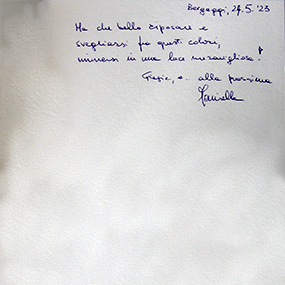 Bergeggi, 24.5.'23
Ma che bello riposare e
svegliarsi fra questi colori,
immersi in una luce meravigliosa!
Grazie, e alla prossima